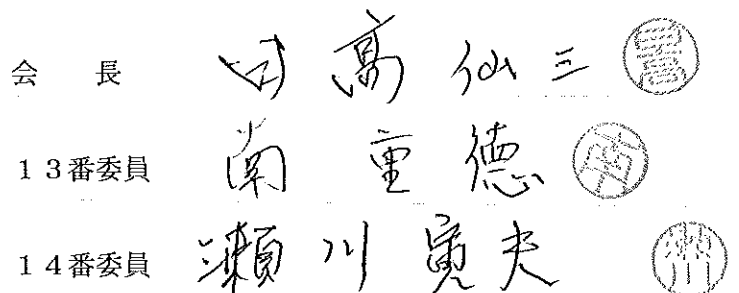 会　長　日高仙三
１３番委員　南重徳
１４番委員　瀬川寛夫